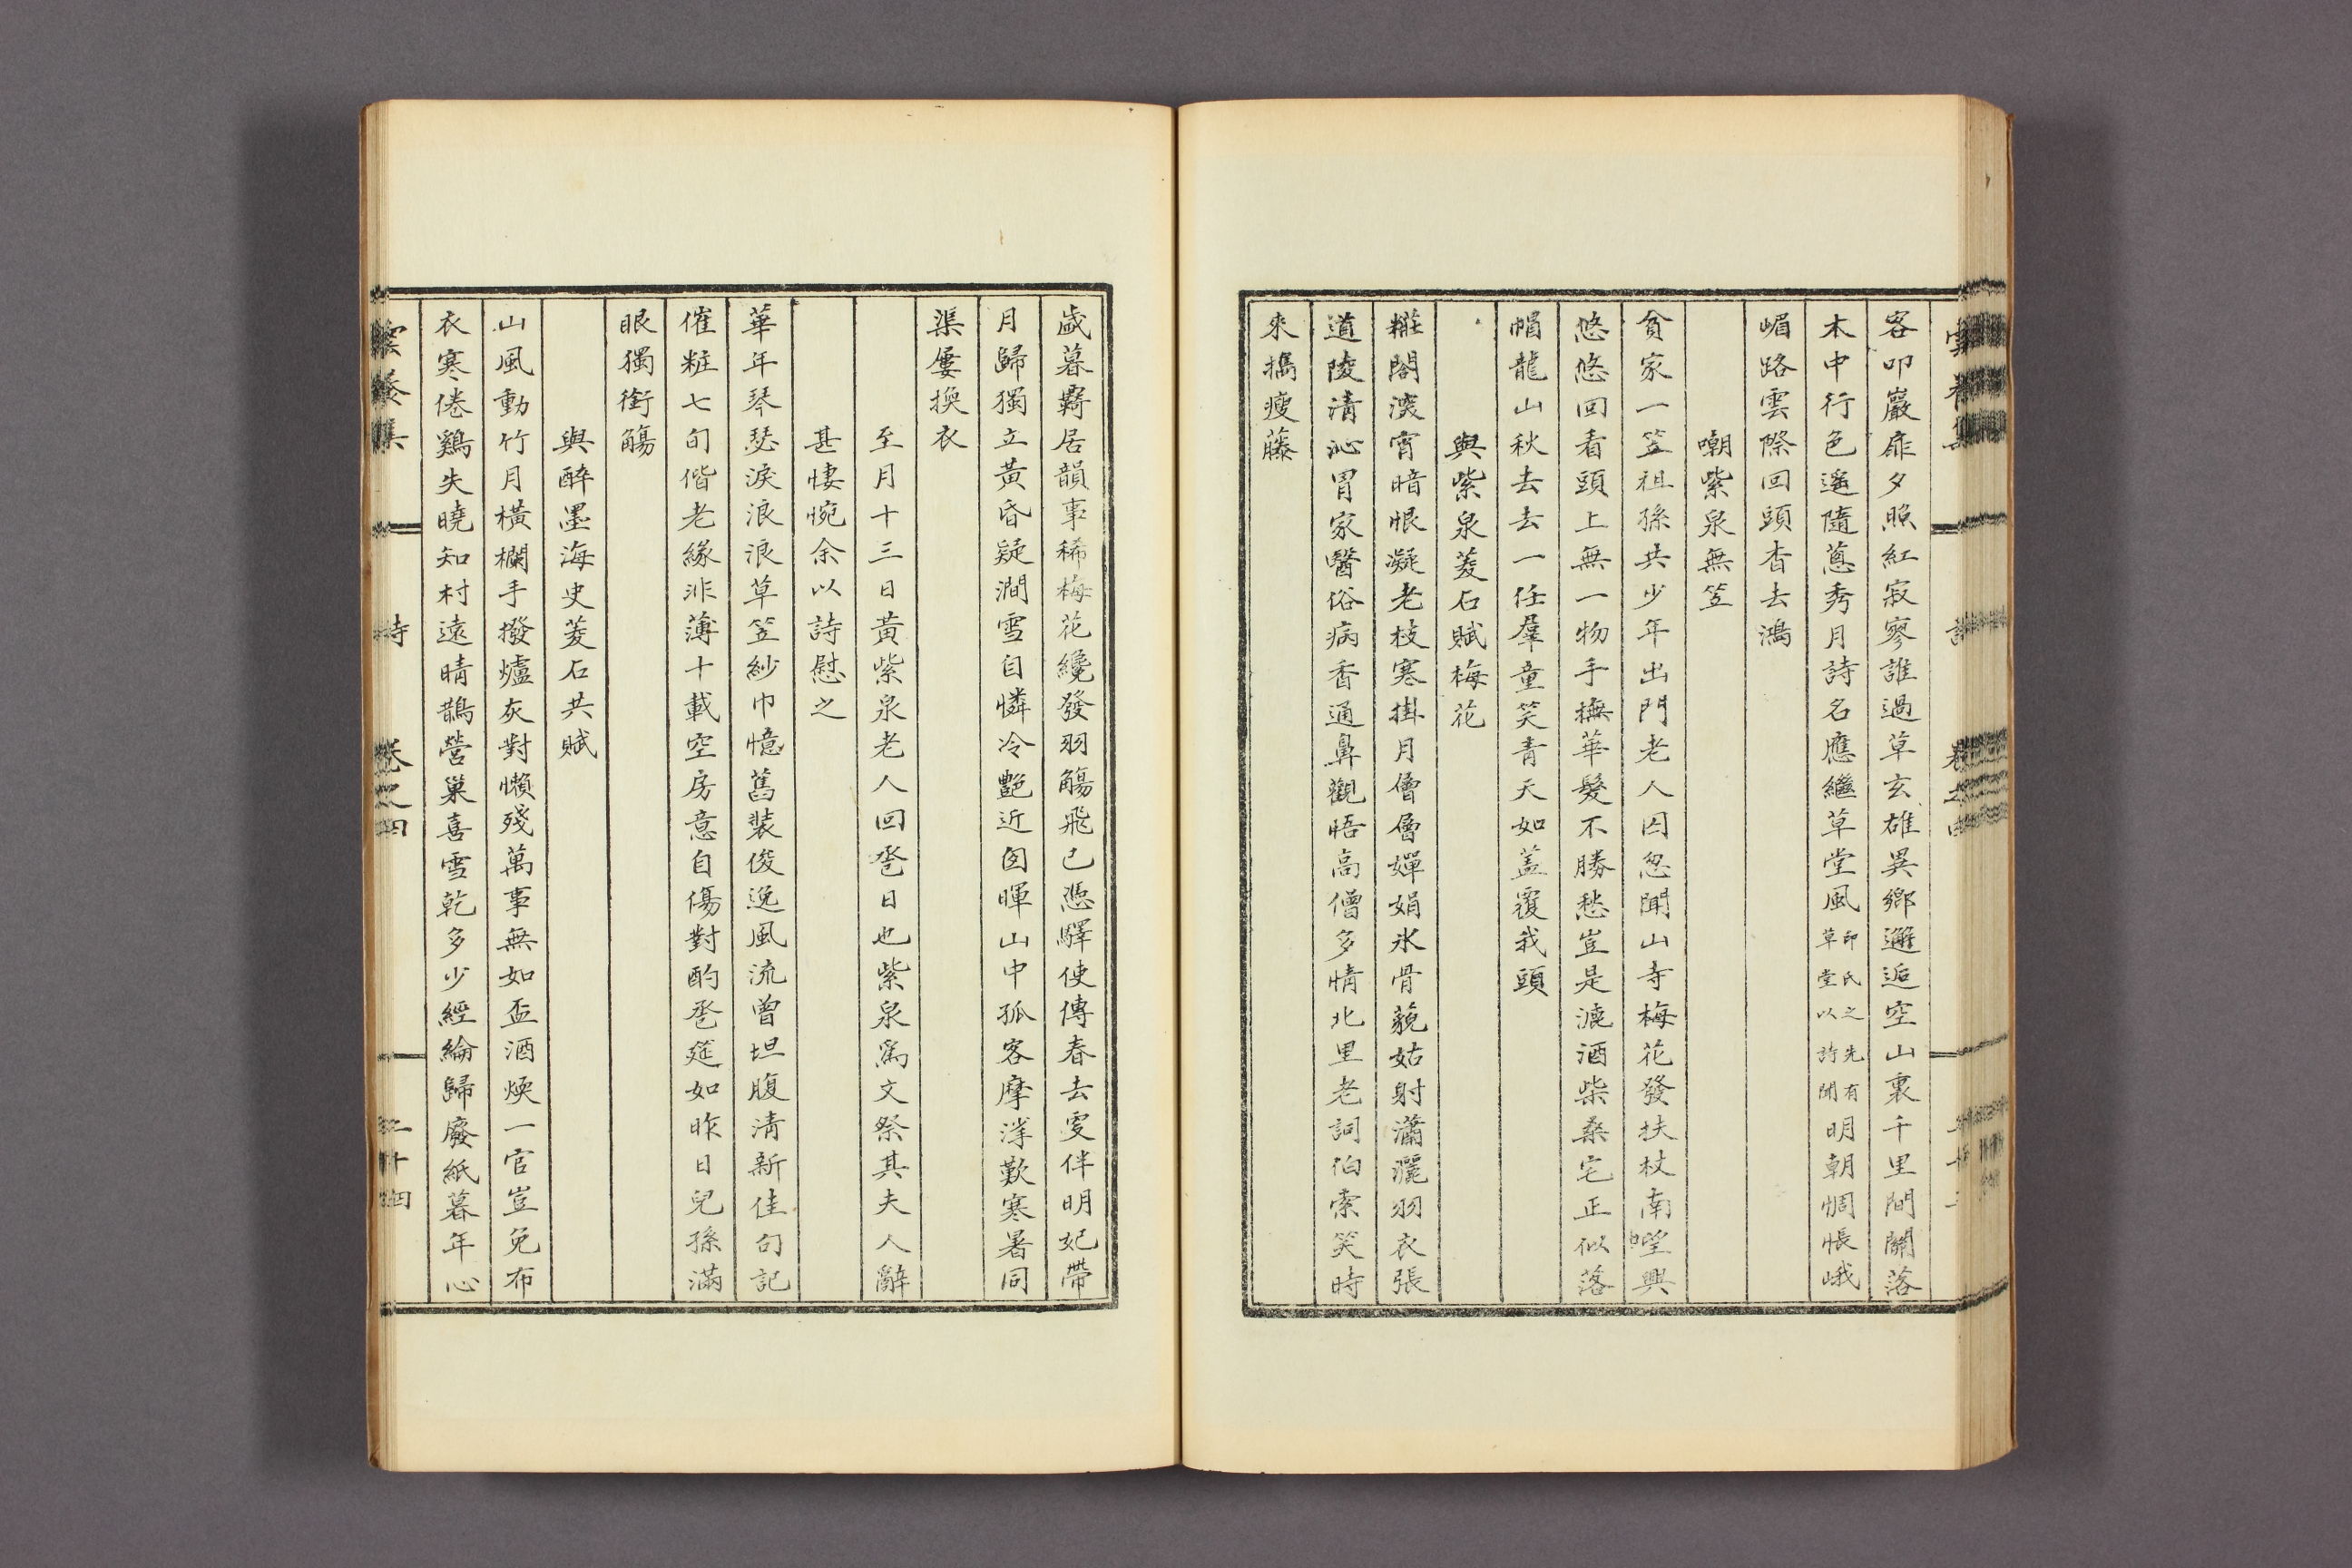 客叩巖扉夕照紅寂寥誰過草玄雄異鄉邂逅空山裏千里間關落
木中行色遙隨蔥秀月詩名應繼草堂風印氏之先有草堂以詩聞明朝惆悵峨
嵋路雲際回頭杳去鴻
嘲紫泉無笠
貧家一笠祖孫共少年出門老人囚忽聞山寺梅花發扶杖南望興
悠悠回看頭上無一物手撫華髮不勝愁豈是漉酒柴桑宅正似落
帽龍山秋去去一任羣童笑青天如蓋覆我頭
與紫泉菱石賦梅花
粧閣淚宵暗恨凝老枝寒掛月層層嬋娟氷骨藐姑射瀟灑羽衣張
道陵淸沁胃家醫俗病香通鼻觀悟高僧多情北里老詞伯索笑時
來携瘦藤
歲暮覊居韻事稀梅花纔發羽觴飛已憑驛使傳春去更伴明妃帶
月歸獨立黃昏疑澗雪自憐冷艶近囱暉山中孤客摩挲歎寒暑同
渠屢換衣
至月十三日黃紫泉老人回巹日也紫泉爲文祭其夫人辭
甚悽惋余以詩慰之
華年琴瑟淚浪浪草笠紗巾憶舊裝俊逸風流曾坦腹淸新佳句記
催粧七旬偕老緣非薄十載空房意自傷對酌巹筵如昨日兒孫滿
眼獨銜觴
與醉墨海史菱石共賦
山風動竹月橫欄手撥爐灰對懶殘萬事無如盃酒煗一官豈免布
衣寒倦鷄失曉知村遠晴鵲營巢喜雪乾多少經綸歸廢紙暮年心
雲養集 詩 卷之四 二十四